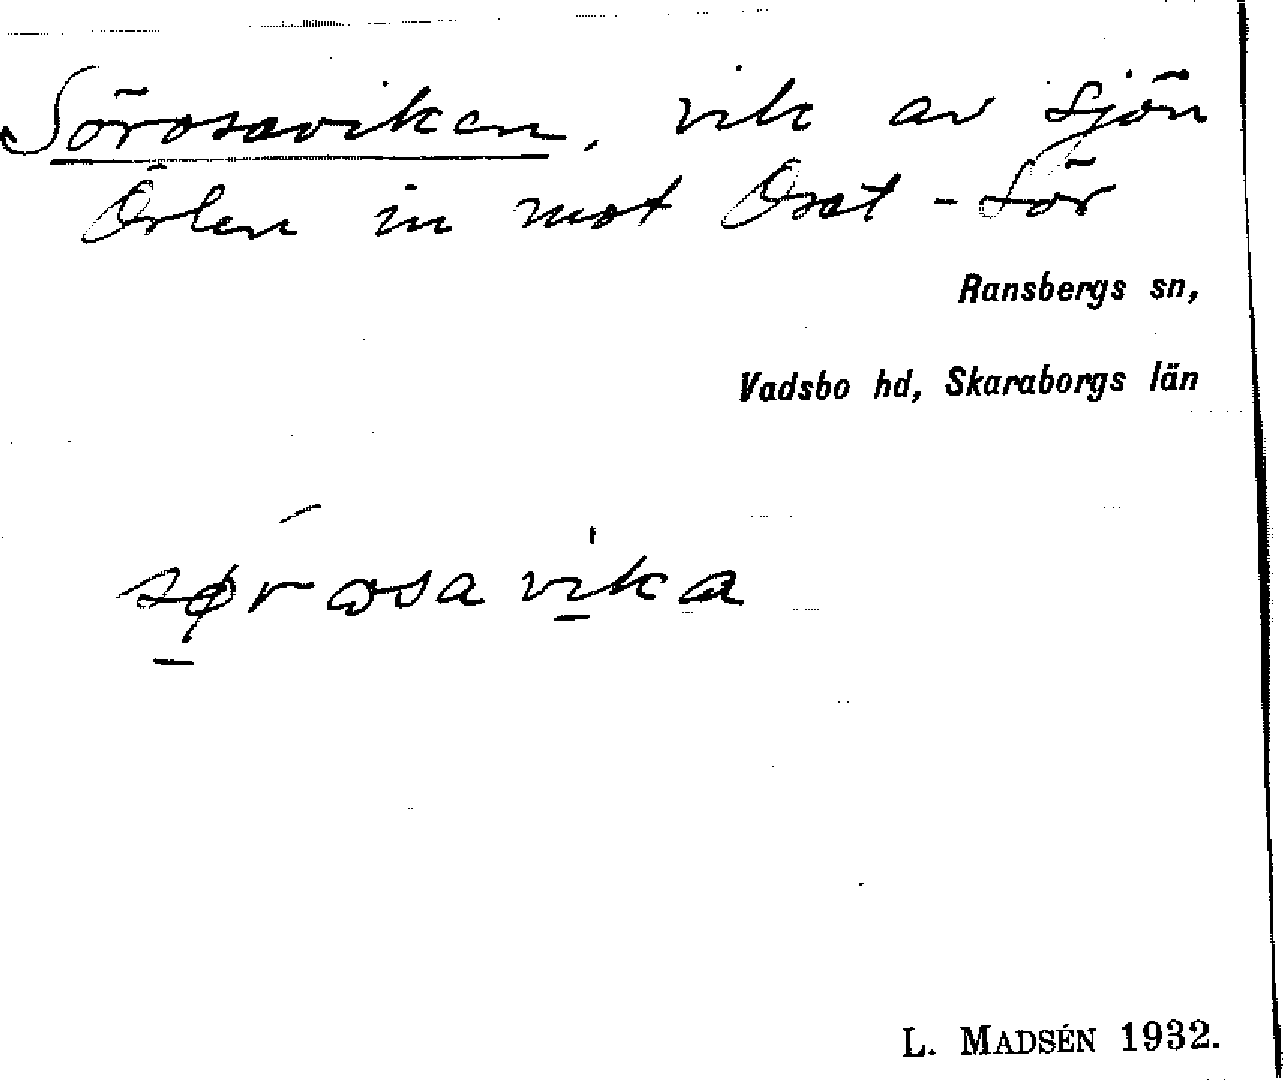 Sörosaviken, vik av sjön
Örlen in mot Osat - Sör
Ransbergs sn,
Vadsbo hd, Skaraborgs län
sørɷsavika
L. MADSÉN 1932.